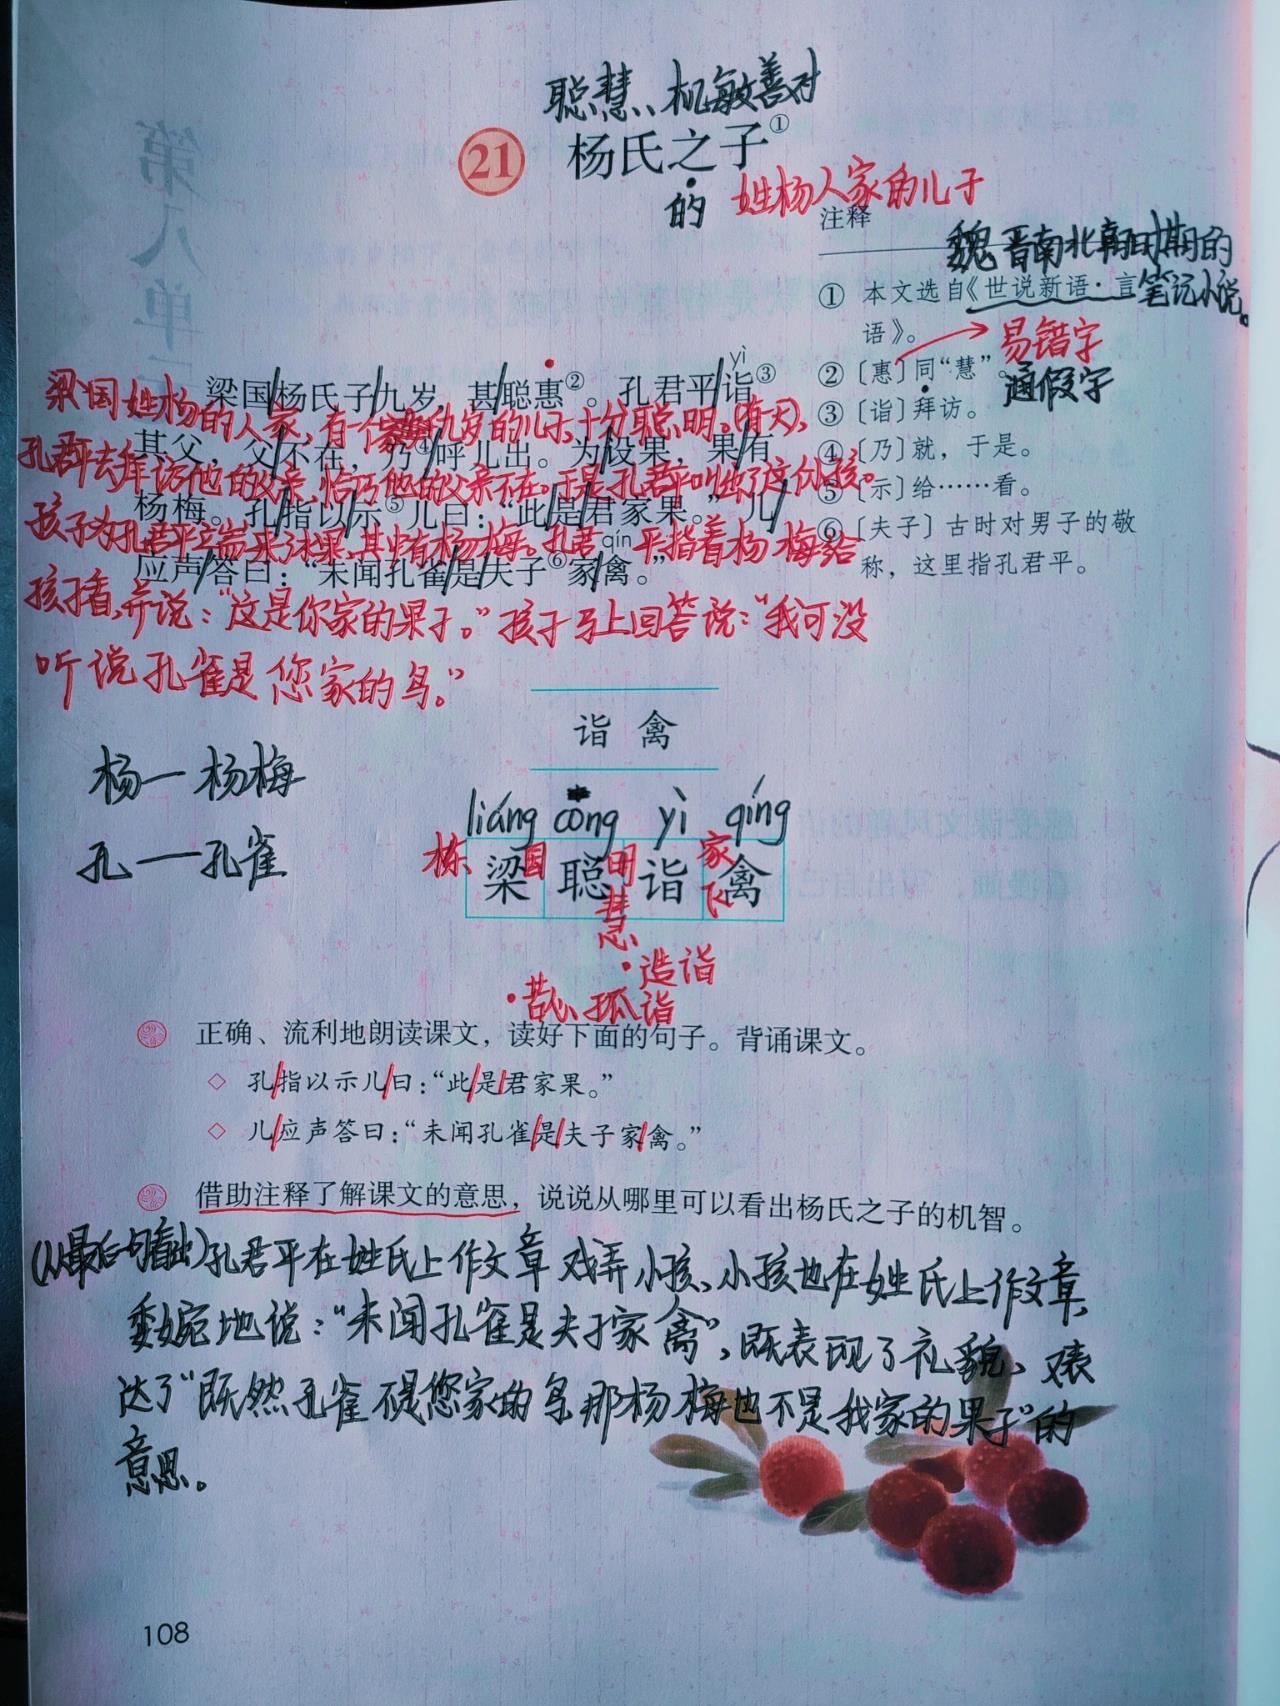 聪慧、机敏善对
21 杨氏之子①
的 姓杨人家的儿子
注释
魏晋南北朝时期的
① 本文选自《世说新语·言 笔记小说。
语》。 易错字
② 〔惠〕同“慧”。 通假字
③ 〔诣〕拜访。
④ 〔乃〕就，于是。
⑤ 〔示〕给……看。
⑥ 〔夫子〕古时对男子的敬
称，这里指孔君平。
yì
梁国/杨氏子/九岁，甚/聪惠②。孔君平/诣③
梁国姓杨的人家，有一个九岁的儿子，十分聪明。(有天)，
其父，父/不在，乃④/呼儿出。为/设果，果/有
孔君平去拜访他的父亲，恰巧他的父亲不在。于是孔君平叫出了这个小孩。
杨梅。孔/指以/示⑤儿曰：“此/是/君家果。”儿/
孩子为孔君平端来了水果，其中有杨梅。孔君平指着杨梅给
qín
应声/答曰：“未闻孔雀/是/夫子⑥家/禽。”
孩子看，并说：“这是你家的果子。”孩子马上回答说：“我可没
听说孔雀是您家的鸟。”
诣 禽
杨一杨梅
孔一孔雀
liáng cōng yì qíng
栋 梁 国 聪 明 诣 家 禽
慧 飞
·造诣
·苦心孤诣
正确、流利地朗读课文，读好下面的句子。背诵课文。
◇ 孔/指以示儿/曰：“此/是/君家果。”
◇ 儿/应声答曰：“未闻孔雀/是/夫子家/禽。”
借助注释了解课文的意思，说说从哪里可以看出杨氏之子的机智。
(从最后一句看出)孔君平在姓氏上作文章戏弄小孩、小孩也在姓氏上作文章，
委婉地说：“未闻孔雀是夫子家禽”，既表现了礼貌、又表
达了“既然孔雀不是您家的鸟，那杨梅也不是我家的果子”的
意思。
108